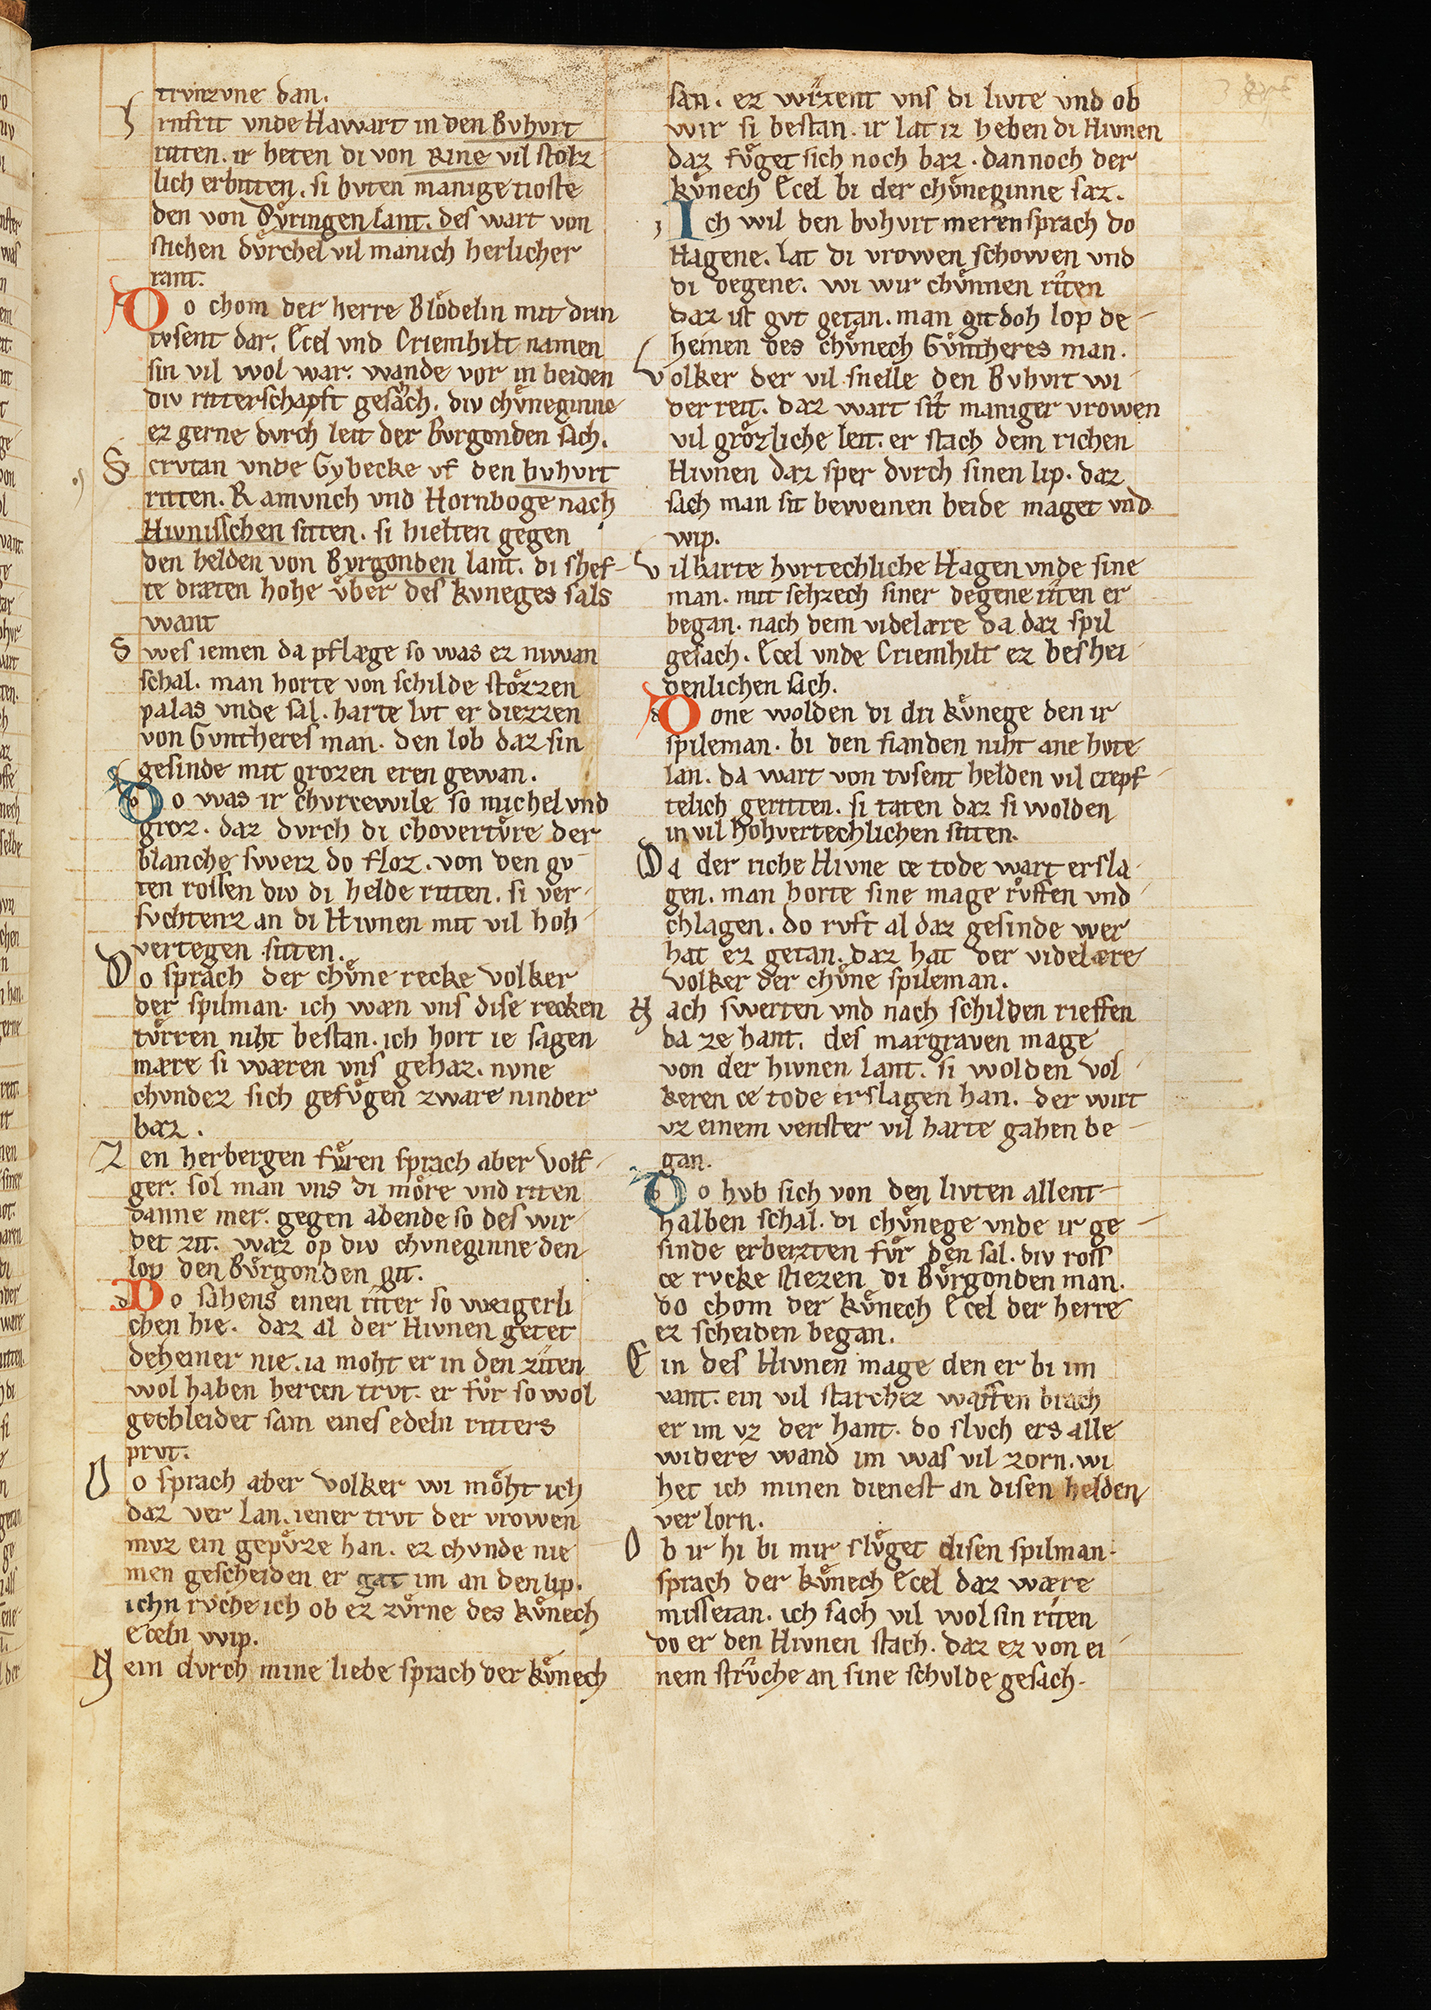 trvnzvne dan.
Irnfrit vnde Hawart in den Bvhvrt
riten. ir heten di von Rine vil stolz
lich erbitten. si bvten manige tioste
den von Dv̊ringen lant. des wart von
stichen dv̊rchel vil manich herlicher
rant.
Do chom der herre Blo̊delin mit drin
tvsent dar. Ecel vnd Criemhilt namen
sin vil wol war. wande vor in beiden
div ritterschapft gesach. div chv̊neginne
ez gerne dvrch leit der Bvrgonden sach.
Scrvtan vnde Gybecke vf den bvhvrt
riten. Ramvnch vnd Hornboge nach
Hivnisschen siten. si hielten gegen
den helden von Bvrgonden lant. di shef
te dræten hohe v̊ber des kvneges sals
want
Swes iemen da pflæge so was ez niwan
schal. man horte von schilde sto̊zzen
palas vnde sal. harte lvt er diezzen
von Gvntheres man. den lob daz sin
gesinde mit grozen eren gewan.
Do was ir chvrcewile so michel vnd
groz. daz dvrch di chovertv̊re der
blanche sweiz do floz. von den gv
ten rossen div di helde riten. si ver
svchtenz an di Hivnen mit vil hoh
vertegen siten.
Do sprach der chv̊ne recke volker
der spilman. ich wæn vns dise recken
tv̊rren niht bestan. ich hort ie sagen
mære si wæren vns gehaz. nvne
chvndez sich gefv̊gen zware ninder
baz.
Zen herbergen fv̊ren sprach aber volk
ger. sol man vns di mo̊re vnd riten
danne mer. gegen abende so des wir
det zit. waz op div chvneginne den
lop den Bv̊rgonden git.
Do sahens einen riter so weigerli
chen hie. daz al der Hivnen getet
deheiner nie. ia moht er in den ziten
wol haben hercen trvt. er fv̊r so wol
gechleidet sam eines edeln ritters
prvt.
Do sprach aber volker wi mo̊ht ich
daz ver lan. iener trvt der vrowen
mvz ein gepv̊ze han. ez chvnde nie
men gescheiden er gat im an den lip.
ichn rvche ich ob ez zv̊rne des kv̊nech
Eceln wip.
Nein dvrch mine liebe sprach der kv̊nech
san. ez wizent vns di livte vnd ob
wir si bestan. ir lat iz heben di Hivnen
daz fv̊get sich noch baz. dannoch der
kv̊nech Ecel bi der chv̊neginne saz.
Ich wil den bvhvrt meren sprach do
Hagene. lat di vrowen schowen vnd
di degene. wi wir chv̊nnen riten
daz ist gvt getan. man git doh lop de
heinen des chv̊nech Gv̊ntheres man.
Volker der vil snelle den Bvhvrt wi
der reit. daz wart sit maniger vrowen
vil gro̊zliche leit. er stach dem richen
Hivnen daz sper dvrch sinen lip. daz
sach man sit beweinen beide maget vnd
wip.
Vil harte hvrtechliche Hagen vnde sine
man. mit sehzech siner degene riten er
began. nach dem videlære da daz spil
gesach. Ecel vnde Criemhilt ez beshei
denlichen sach.
Done wolden di dri kv̊nege den ir
spileman. bi den fianden niht ane hvte
lan. da wart von tvsent helden vil crepf
telich geritten. si taten daz si wolden
in vil hohvertechlichen siten.
Da der riche Hivne ce tode wart ersla
gen. man horte sine mage rv̊ffen vnd
chlagen. do rvft al daz gesinde wer
hat ez getan. daz hat der videlære
volker der chv̊ne spileman.
Nach swerten vnd nach schilden rieffen
da ze hant. des margraven mage
von der hivnen lant. si wolden vol
keren ce tode erslagen han. der wirt
vz einem venster vil harte gahen be
gan.
Do hvb sich von den livten allent
halben schal. di chv̊nege vnde ir ge
sinde erbeizten fv̊r den sal. div ross
ce rvcke stiezen di Bv̊rgonden man.
do chom der kv̊nech Ecel der herre
ez scheiden began.
Ein des Hivnen mage den er bi im
vant. ein vil starchez waffen brach
er im vz der hant. do slvch ers alle
widere wand im was vil zorn. wi
het ich minen dienest an disen helden
ver lorn.
Ob ir hi bi mir slv̊get disen spilman.
sprach der kv̊nech Ecel daz wære
missetan. ich sach vil wol sin riten
do er den Hivnen stach. daz ez von ei
nem strv̊che an sine schvlde gesach.